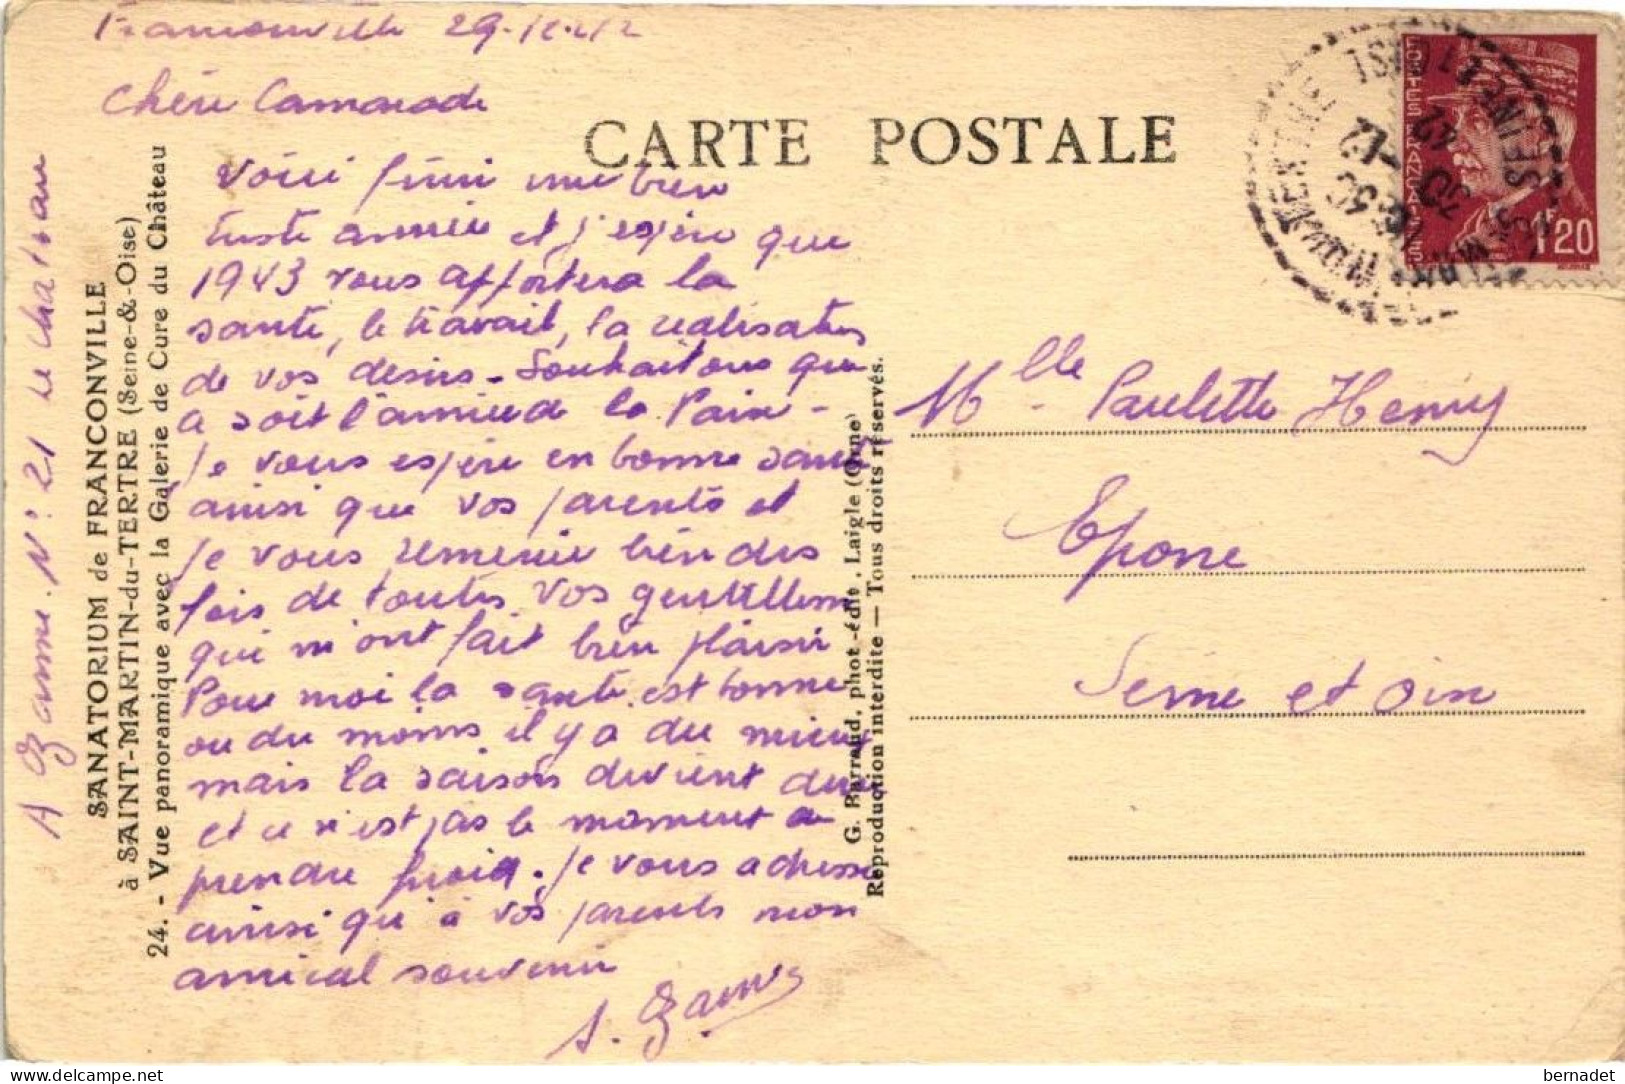 Franconville 29-12-42
Chère Camarade
CARTE POSTALE
Voici fini une bien
triste année et j'espère que
1943 vous apportera la
santé, le travail, la réalisation
de vos désirs - Souhaitons que
ce soit l'année de la Paix -
Je vous espère en bonne santé
ainsi que vos parents et
je vous remercie bien des
fois de toutes vos gentillesses
qui m'ont fait bien plaisir
Pour moi la santé est bonne
ou du moins il y a du mieux
mais la saison devient dure
et ce n'est pas le moment de
prendre froid. Je vous adresse
ainsi qu'à vos parents mon
amical souvenir
Mlle Paulette Henry
Epone
Seine et Oise
SANATORIUM de FRANCONVILLE
à SAINT-MARTIN-du-TERTRE (Seine-&-Oise)
24. - Vue panoramique avec la Galerie de Cure du Château
G. Barraud, phot.-édit., Laigle (Orne)
Reproduction interdite — Tous droits réservés.
N° 21 Le Chateau
POSTES FRANÇAISES
1F20
bernadet